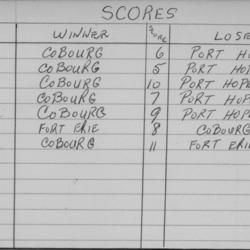 SCORES
WINNER SCORE LOSE
COBOURG 6 PORT HO
COBOURG 5 PORT HOP
COBOURG 10 PORT HOPE
COBOURG 7 PORT HOP
COBOURG 9 PORT HOPE
FORT ERIE 8 COBOURG
COBOURG 11 FORT ERIE